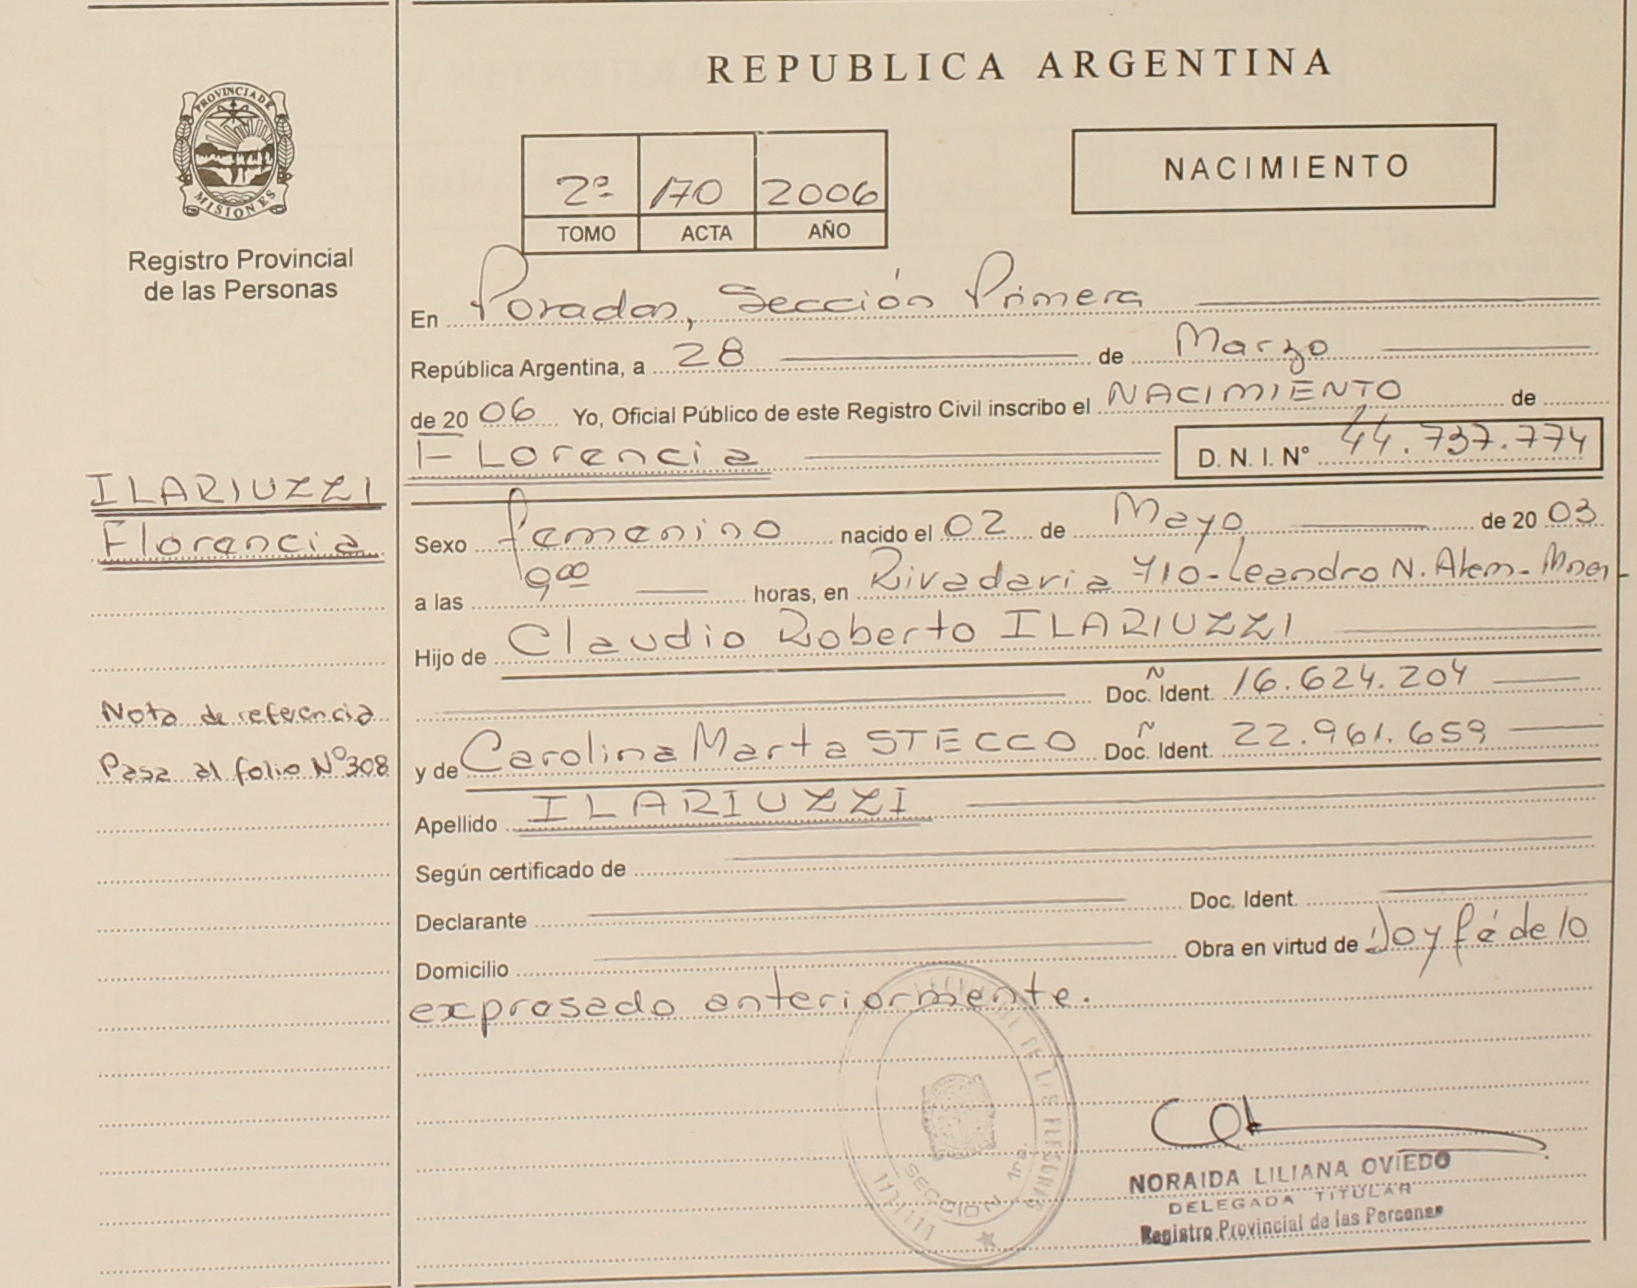 REPUBLICA ARGENTINA
PROVINCIA DE
MISIONES
Registro Provincial
de las Personas
2º 170 2006
TOMO ACTA AÑO
NACIMIENTO
En Posadas, Sección Primera
República Argentina, a 28 de Marzo
de 20 06 Yo, Oficial Público de este Registro Civil inscribo el NACIMIENTO de
Florencia D. N. I. N° 44.737.774
ILARIUZZI
Florencia
Sexo femenino nacido el 02 de Mayo de 20 03
a las 9 00 horas, en Rivadavia 710-Leandro N. Alem-
Hijo de Claudio Roberto ILARIUZZI
Doc. Ident. 16.624.204
Nota de referencia
Pasa al folio Nº308
y de Carolina Marta STECCO Doc. Ident. 22.961.659
Apellido ILARIUZZI
Según certificado de
Declarante Doc. Ident.
Domicilio Obra en virtud de Doy fé de lo
expresado anteriormente.
DE LAS PERSONAS
SECCION 1ra.
NORAIDA LILIANA OVIEDO
DELEGADA TITULAR
Registro Provincial de las Personas